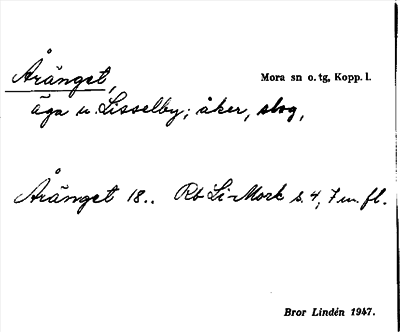 Åränget,
Mora sn o. tg, Kopp. l.
äga u. Lisselby; åker, skog,
Åränget 18.. Rb Li-Mork s. 4, 7 m. fl.
Bror Lindén 1947.